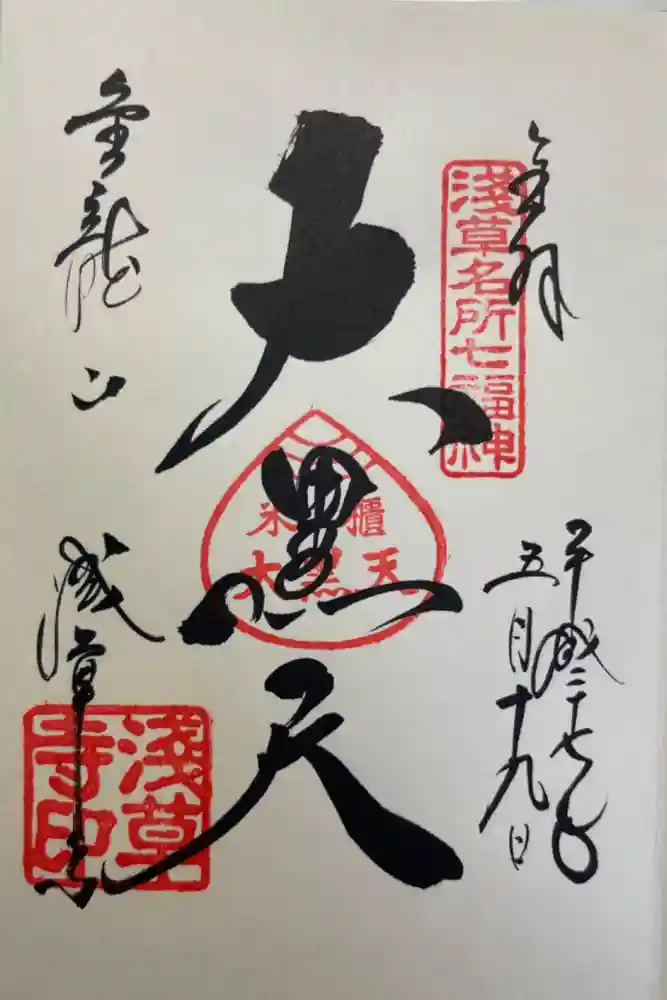 奉拝
淺草名所七福神
平成二十七年
五月十九日
大黒天
米櫃
大黒天
金龍山
浅草寺
淺草
寺印